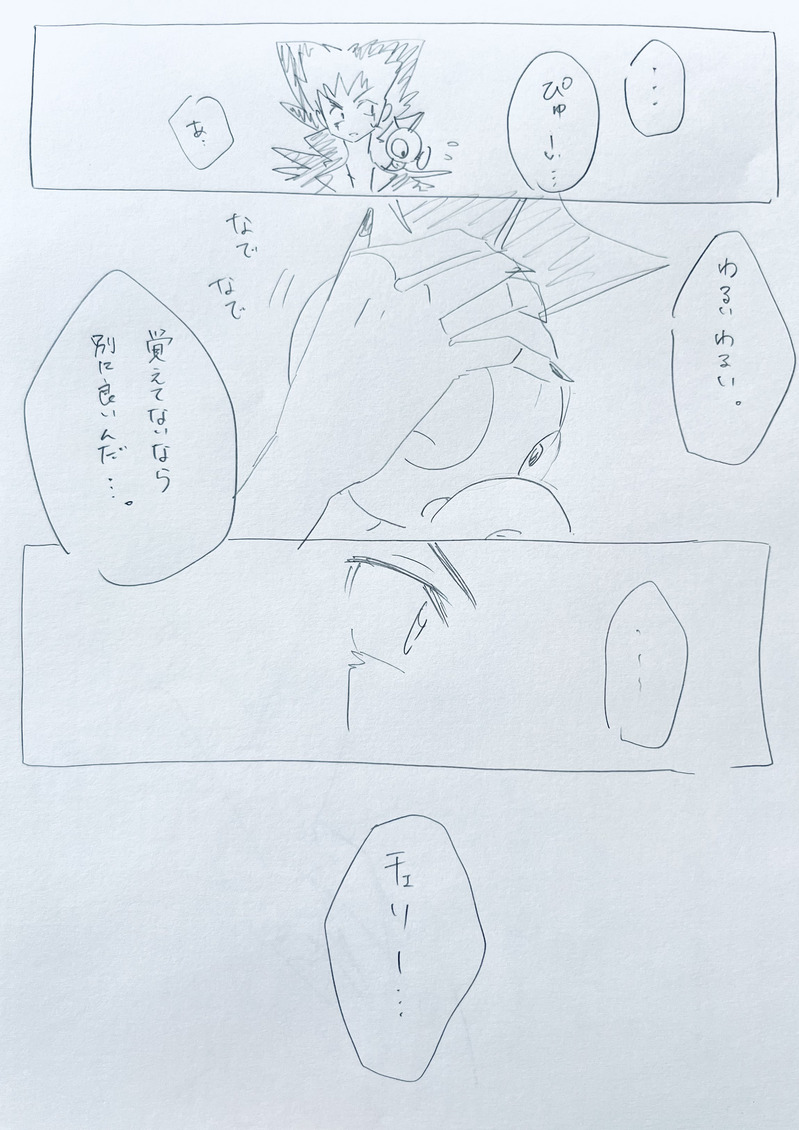 ・・・
ぴゅーい…
あ..
わるいわるい。
なで
なで
覚えてないなら
別に良いんだ…。
・・・
チェリー…